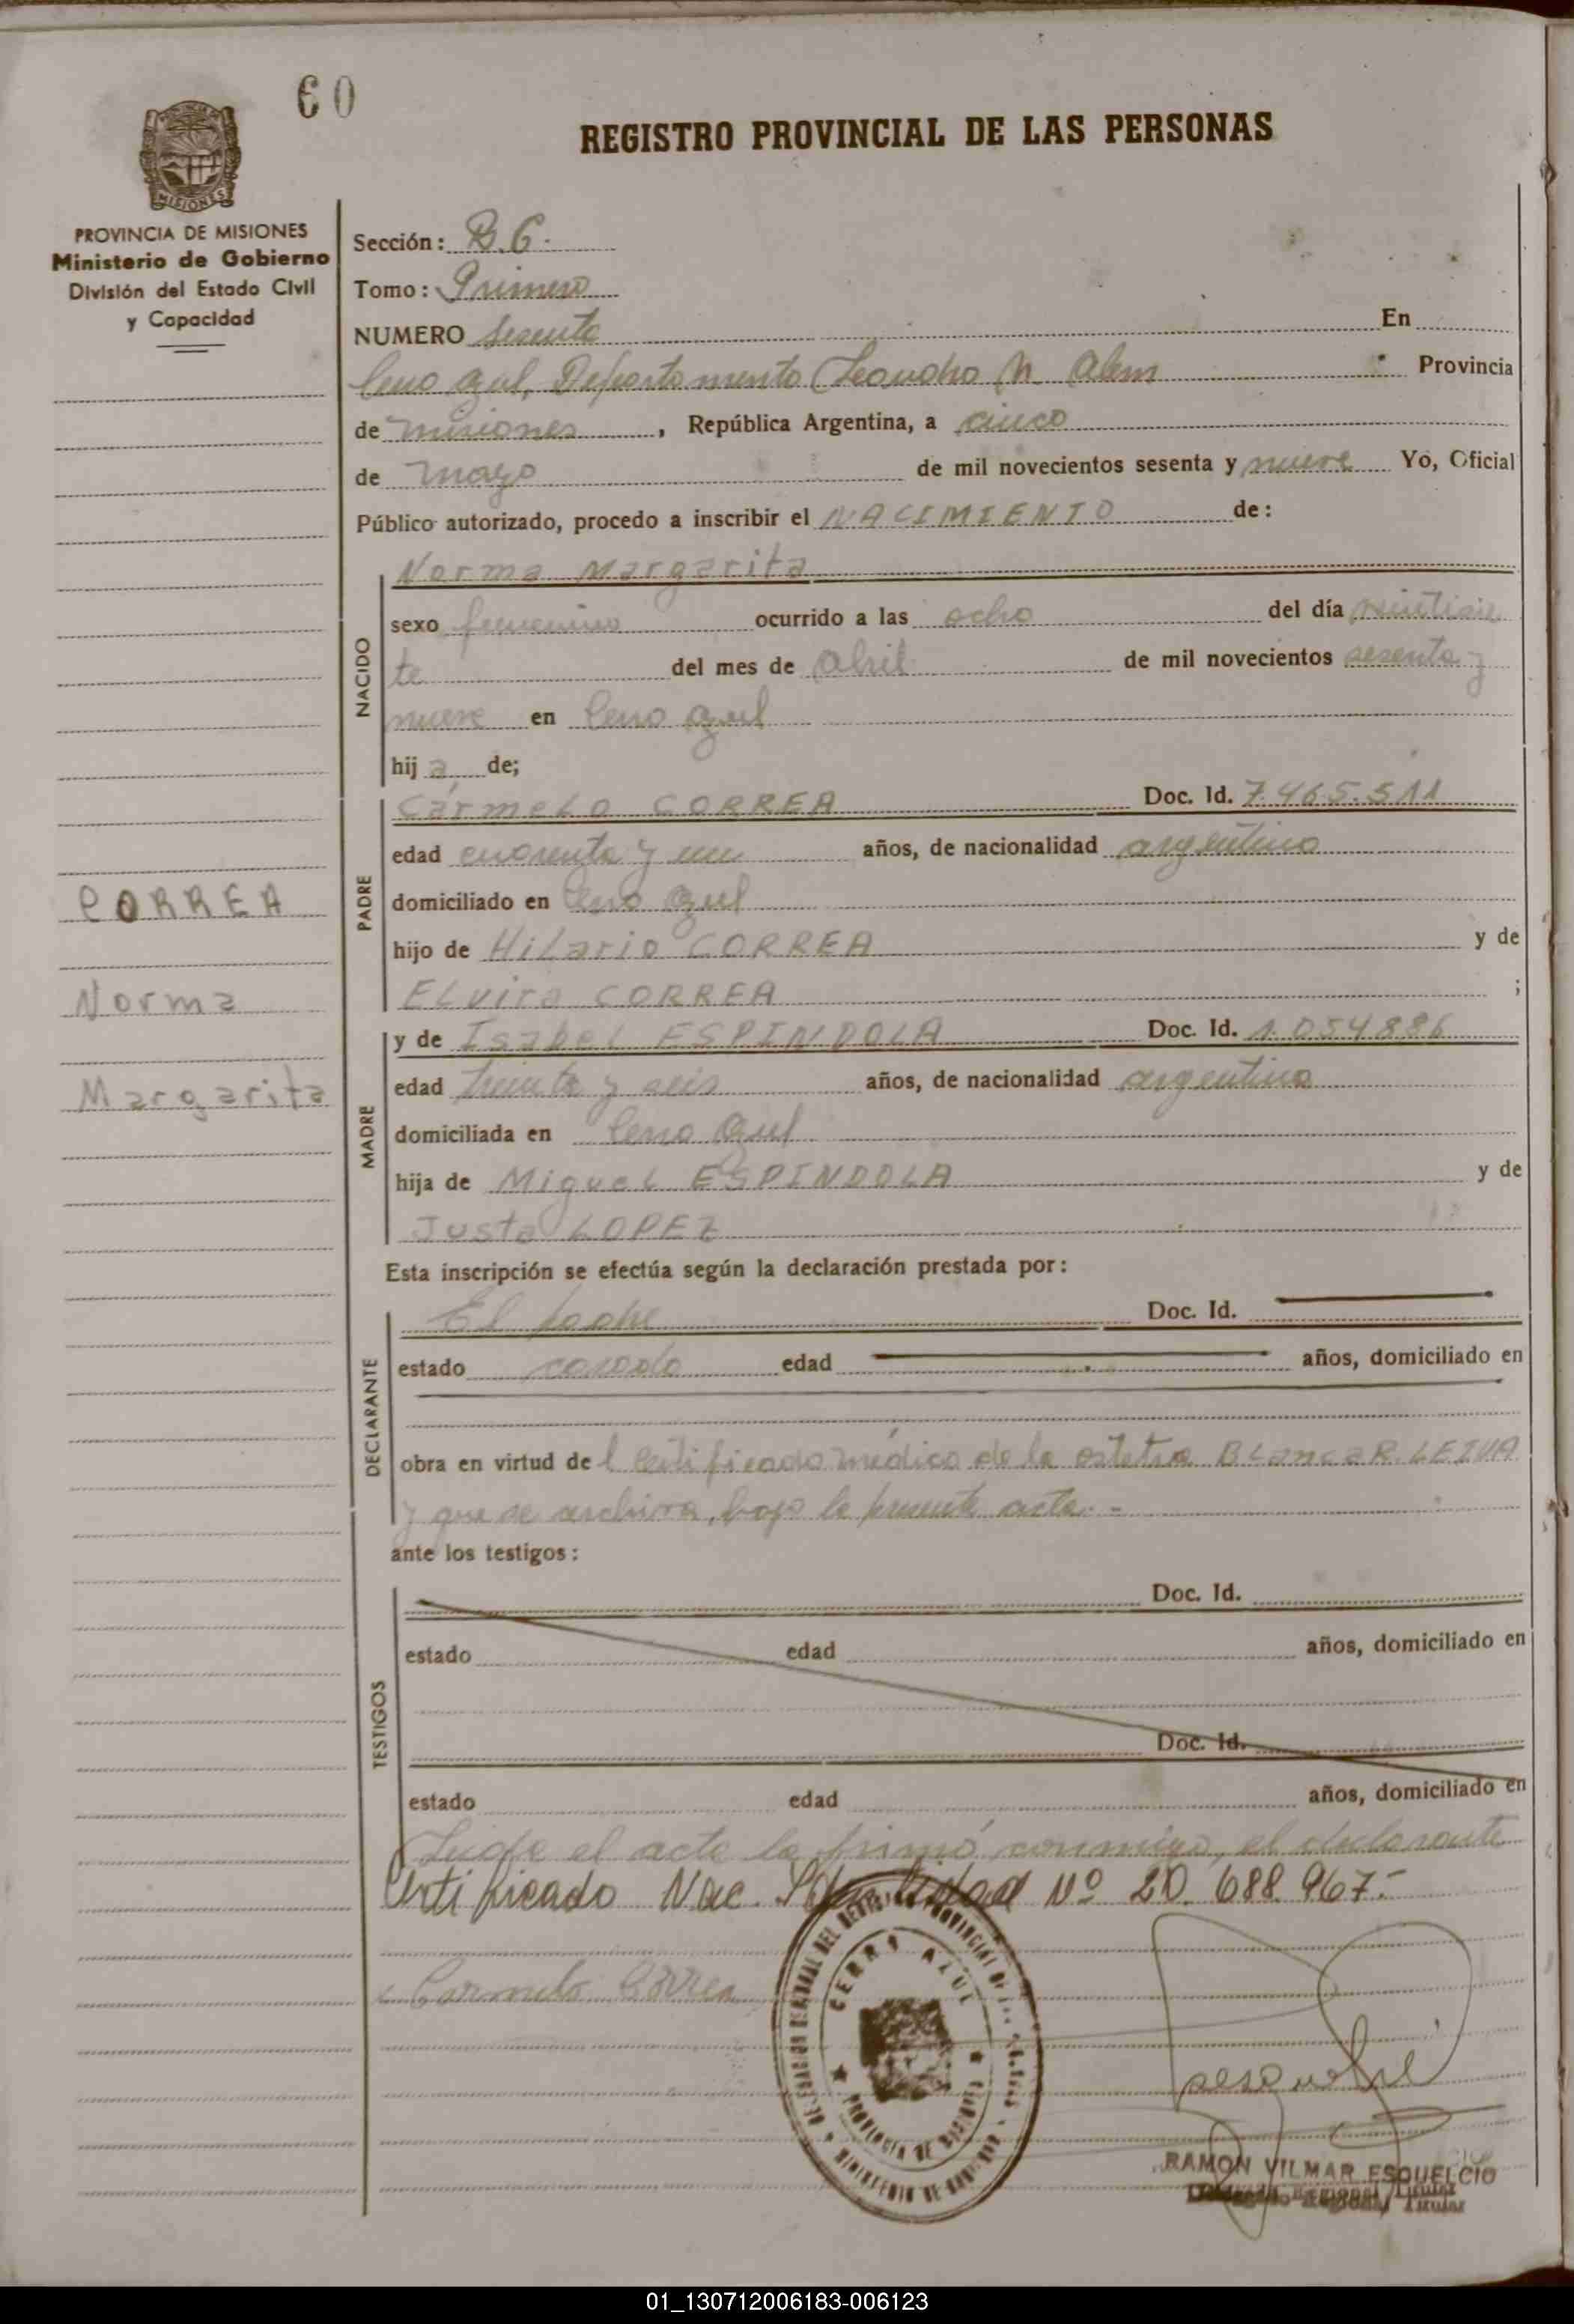 60
REGISTRO PROVINCIAL DE LAS PERSONAS
MISIONES
PROVINCIA DE MISIONES
Ministerio de Gobierno
División del Estado Civil
y Capacidad
Sección: B.C.
Tomo: Primero
NUMERO sesenta En
Cerro Azul, Departamento Leandro N. Alem Provincia
de misiones, República Argentina, a cinco
de mayo de mil novecientos sesenta y nueve Yo, Oficial
Público autorizado, procedo a inscribir el NACIMIENTO de:
Norma Margarita
NACIDO
sexo femenino ocurrido a las ocho del día veintisie
te del mes de Abril de mil novecientos sesenta y
nueve en Cerro Azul
hija de;
Carmelo CORREA Doc. Id. 7.465.511
PADRE
edad cuarenta y un años, de nacionalidad argentino
domiciliado en Cerro Azul
CORREA
hijo de Hilario CORREA y de
Norma
Elvira CORREA ;
y de Isabel ESPINDOLA Doc. Id. 1.054.886
Margarita
MADRE
edad treinta y seis años, de nacionalidad argentina
domiciliada en Cerro Azul
hija de Miguel ESPINDOLA y de
Justa LOPEZ
Esta inscripción se efectúa según la declaración prestada por:
El padre Doc. Id.
DECLARANTE
estado casado edad años, domiciliado en
obra en virtud del Certificado médico de la ostetra Blanca R. LEIVA
y que se archiva, bajo la presente acta.-
ante los testigos:
TESTIGOS
Doc. Id.
estado edad años, domiciliado en
Doc. Id.
estado edad años, domiciliado en
el acta la firmó conmigo, el declarante
Certificado Nac. Nº 20.688.967.-
Carmelo Correa
CERRO AZUL
PROVINCIA DE MISIONES
RAMON VILMAR ESQUELCIO
Delegado Regional Titular
01_130712006183-006123